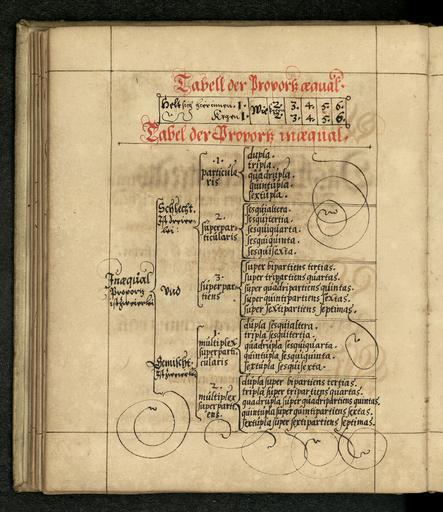 Tabell der Proportz æqual.
Helt sich hierinnen. 1. Wie 2. 3. 4. 5. 6.
Kegen 1. 2. 3. 4. 5. 6.
Tabel der Proportz inæqual.
Inæqual
Proportz
ist zweierlei
Schlecht.
Ist dreier-
lei:
Und
Gemischt.
Ist zweierlei
1.
particula
ris
dupla.
tripla.
quadrupla.
quintupla.
sextupla.
2.
superpar-
ticularis
sesquialtera.
sesquitertia.
sesquiquarta.
sesquiquinta.
sesquisexta.
3.
superpar-
tiens
super bipartiens tertias.
super tripartiens quartas.
super quadripartiens quintas.
super quintipartiens sextas.
super sextipartiens septimas.
1.
multiplex
superparti-
cularis
dupla sesquialtera.
tripla sesquitertia.
quadrupla sesquiquarta.
quintupla sesquiquinta.
sextupla sesquisexta.
2.
multiplex
superparti-
ens.
dupla super bipartiens tertias.
tripla super tripartiens quartas.
quadrupla super quadripartiens quintas.
quintupla super quintipartiens sextas.
sextupla super sextipartiens septimas.